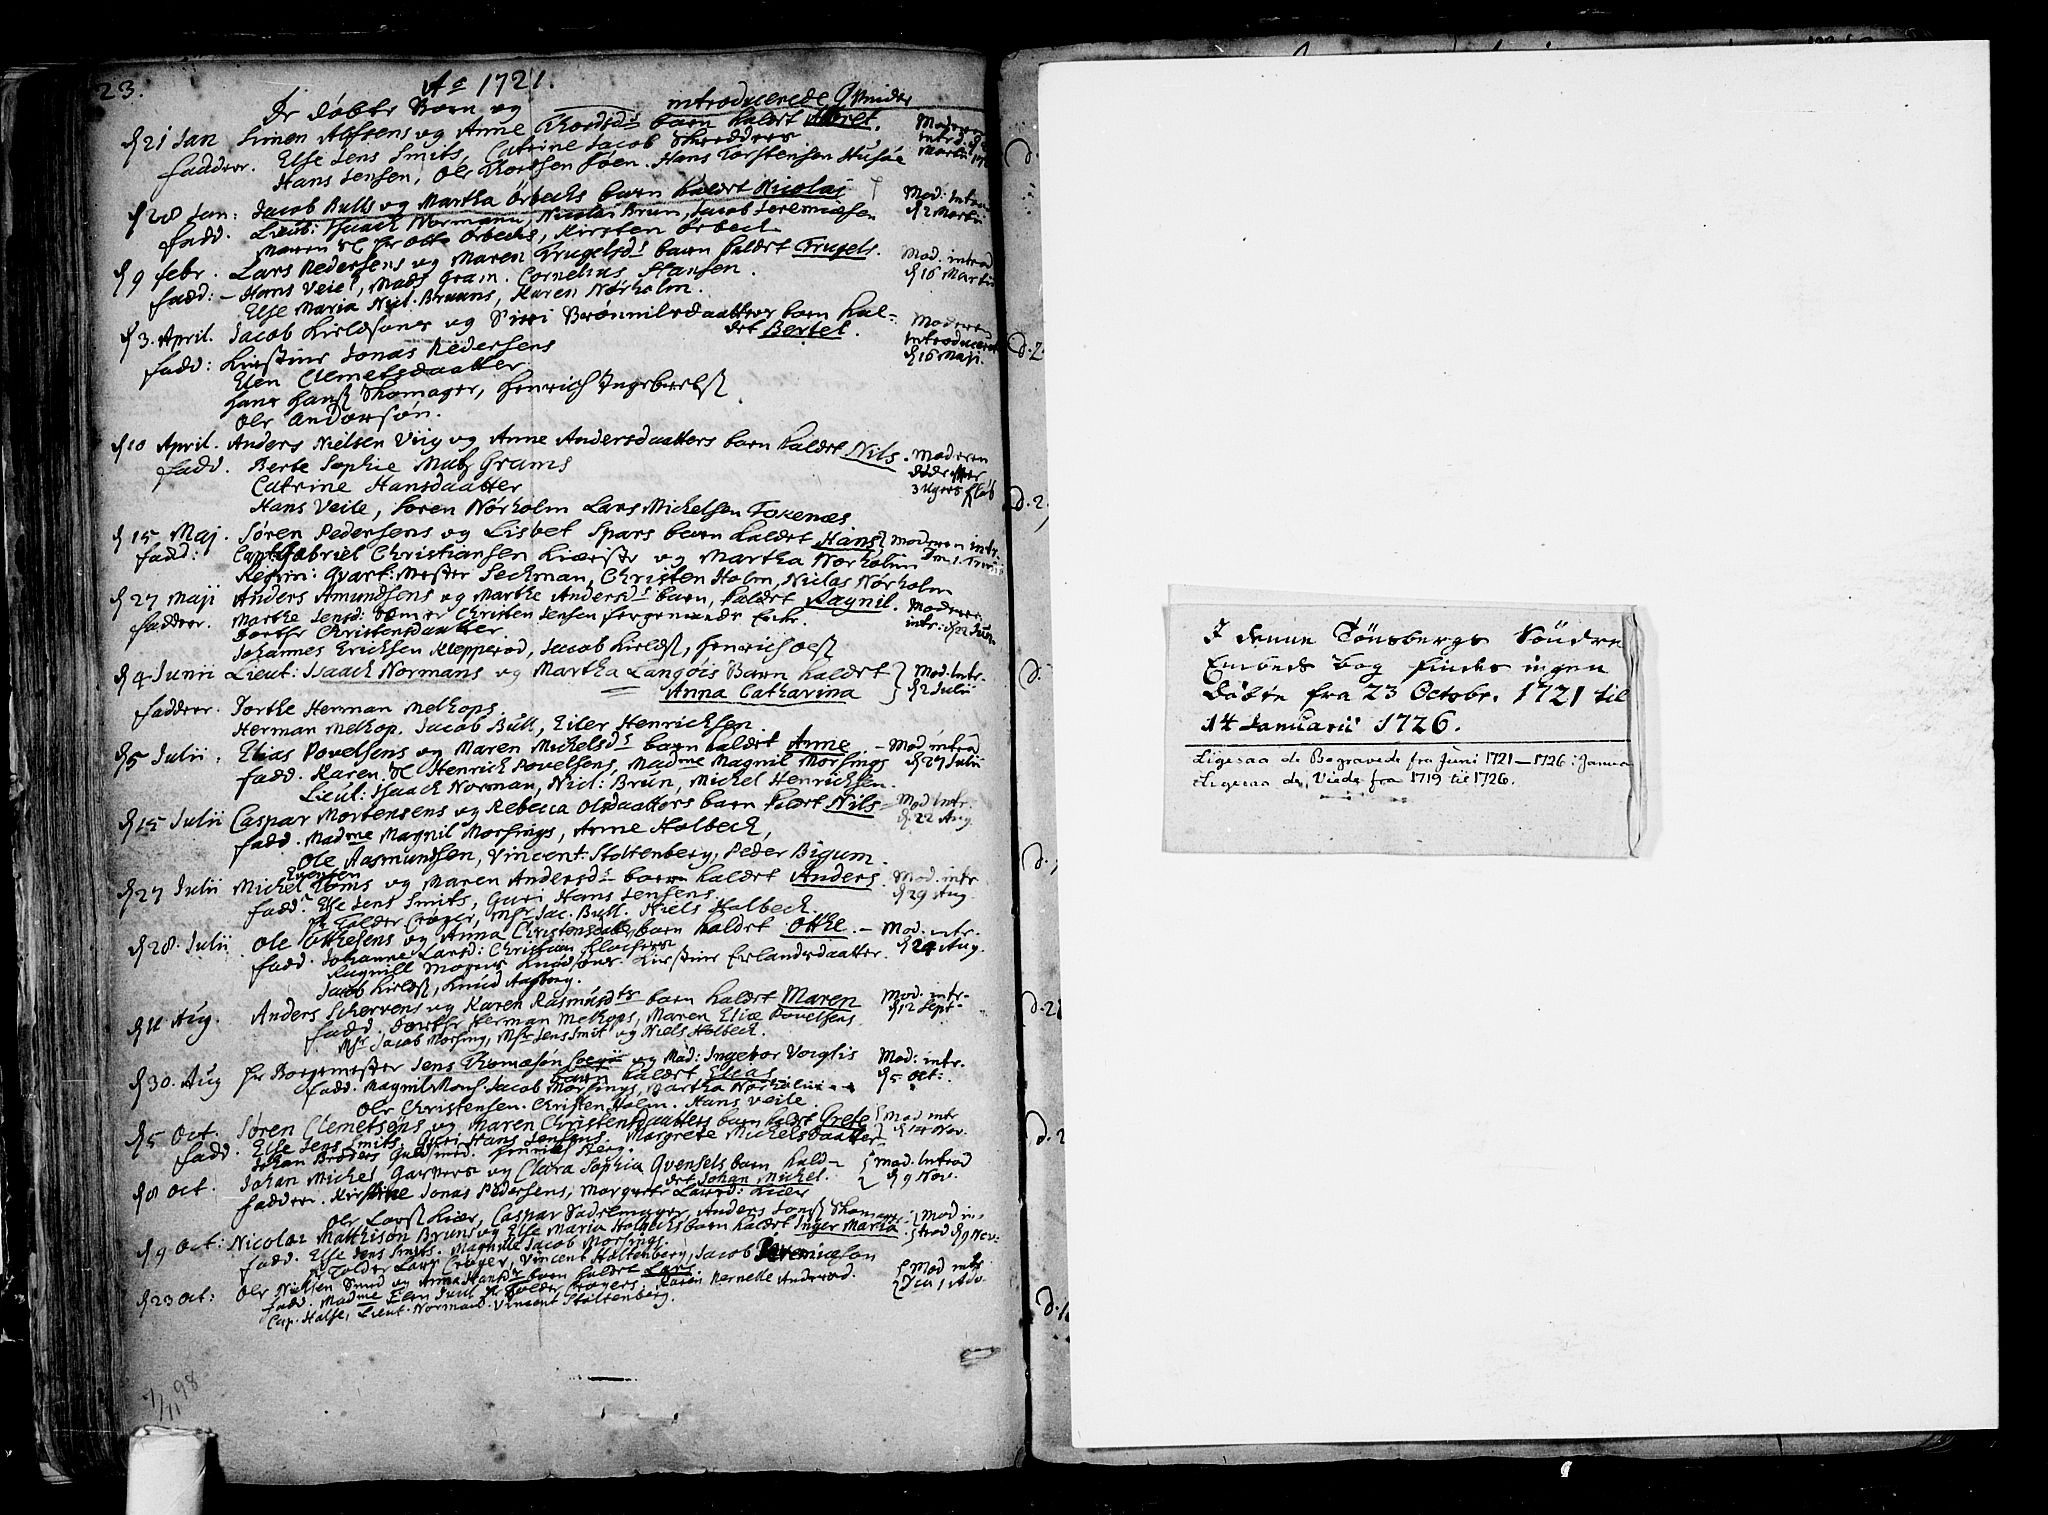 23.
Ao 1721.
De døbte Børn og introducerede Qvinder
d 21 Jan Simon Alfsens og Anne Thordsds barn kaldet Marthe
Moderen intrd: d 2 Martii
faddrer. Else Jens Smits, Catrine Jacob Skredders
Hans Jensen, Ole Thordsen Føen. Hans Torstensen Husøe
d 28 Jan: Jacob Bulls og Martha Ørbechs barn kaldet Nicolai
Mod: Intro d 2 Martii
fadd. Lieut: Isaach Normann, Nicolai Brun, Jacob Jeremiæsen
Maren Sl Hr Otto Ørbechs, Kirsten Ørbech
d 9 febr. Lars Pedersens og Maren Trugelsds barn kaldet Trugels.
Mod. introd d 16 Martii
fadd: - Hans Veile, Mads Gram. Cornelius Hansen.
Else Maria Nicl. Bruuns, Karen Nørholm.
d 3. April. Jacob Kieldsøns og Siri Brønnilsdaatter barn kaldet Bertel.
Moderen introduceret d 16 Maji.
fadd: Kirstine Jonas Pedersens
Elen Clemetsdaatter
Hans Hanss. Skomager, Henrich Ingebretss.
Ole Andersøn.
d 10 April. Anders Nielsen Viig og Anne Andersdaatters barn kaldet Nils.
Moderen døde efter 3 Ugers
fadd. Berte Sophie Mats Grams
Catrine Hansdaatter
Hans Veile, Søren Nørholm Lars Michelsen Tokenæs.
d 15 Maj. Søren Pedersens og Lisbet Spars barn kaldet Hans
Moderen intr.
fadd: Capt Gabriel Christiansen og Martha Nørholm
Regim: Qvart: Mester Seckman, Christen Holm, Niclas Nørholm
d 27 Maji Anders Amundsens og Marthe Andersds barn, kaldet Ragnil.
Moderen intr: d 22 Jun
faddrer. Marthe Jensd: Christen Jensen
Dorthe Christensdaatter
Johannes Erichsen Klepperød, Jacob Kieldss, Henrich Olss
d 4 Junii Lieut: Isaack Normans og Martha Langøis Barn kaldet
Anna Catharina
Mod. Intr. d 2 Julii
faddrer. Dorthe Herman Melkops.
Herman Melkop. Jacob Bull, Eiler Henrichsen
d 5 Julii. Elias Povelsens og Maren Michelsds barn kaldet Anne
- Mod introd d 27 Julii
fadd. Karen Sl Henrick Povelsens, Madme Magnil Morsings
Lieut: Isaack Norman, Nicl: Brun, Michel Henrichsen.
d 15 Julii Caspar Mortensens og Rebecca Olsdaatters barn kaldet Nils
- Mod Intr. d. 22 Aug
fadd. Madme Magnil Morsings, Anne Holbeck,
Ole Aasmundsen, Vincent: Stoltenberg, Peder Bigum.
d 27 Julii Michel Toms og Maren Andersds barn kaldet Anders.
Mod. intr d 29 Aug.
fadd. Else Jens Smits, Guri Hans Jensens.
Hr Tolder Crøger, Msr Jac. Bull. Niels Holbeck.
d 28. Julii. Ole Otthesens og Anna Christensdatters barn kaldet Otthe.
- Mod: intr. d 24 Aug.
fadd. Johanne Larsd: Christian
Ragnill Mogens Knudsøns. Kirstine Erlandsdaatter.
Jacob Kieldss, Knud Aasberg.
d 11 Aug. Anders Schorvens og Karen Rasmusdtrs barn kaldet Maren
Mod. intr. d 12 Sept.
fadd. Dorthe Herman Melkops, Maren Eliæ Povelsens
Msr Jacob Morsing, Msr Jens Smit og Niels Holbeck.
d 30. Aug Hr Borgemester Jens Thomæsøn og Mad: Ingebor Voiglis
barn kaldet Elias
Mod: intr. d 5 Oct:
fadd. Magnil Mons. Jacob Morsings, Martha Nørholm
Ole Christensen. Christen Holm. Hans Veile.
d 5 Oct. Søren Clemetsøns og Maren Christensdaatters barn kaldet Grete
Mod intr d 14 Nov.
fadd. Else Jens Smits. Guri Hans Jensens. Margrete Michelsdaatter
Johan Brøders Guldsmed. Henrich Berg.
d 8 Oct. Johan Michel og Clara Sophia Qvensels barn kaldet Johan Michel.
Mod. Introd d 9 Nov.
faddrer. Kirstine Jonas Pedersens, Margrete Laursd: Kiær
Ole Larss Kiær, Caspar Sadelmager, Anders Jonss Skomager.
d 9 Oct: Nicolai Mathisøn Bruns og Else Maria Holbecks barn kaldet Inger Maria
Mod introd d 9 Nov:
fadd. Else Jens Smits. Magnille Jacob Morsings.
Hr Tolder Lars Crøger, Vincent Stoltenberg, Jacob Jeremiæson
d 23 Oct: Ole Nielsen Sund og Anna Hansdr barn kaldet Lars
Mod intr
fadd. Madme Elen Juul Hr Tolder Crøgers. Karen Pernelle Anderød.
Cap. Halse, Lieut. Norman. Vincent Stoltenberg.
7/11 98
I denne Tönsbergs Söndre
Embeds Bog findes ingen
Döbte fra 23 Octobr. 1721 til
14 Januarii 1726.
Ligesaa de Begravede fra Juni 1721–1726: Janua
Ligesaa de, Viede fra 1719 til 1726.